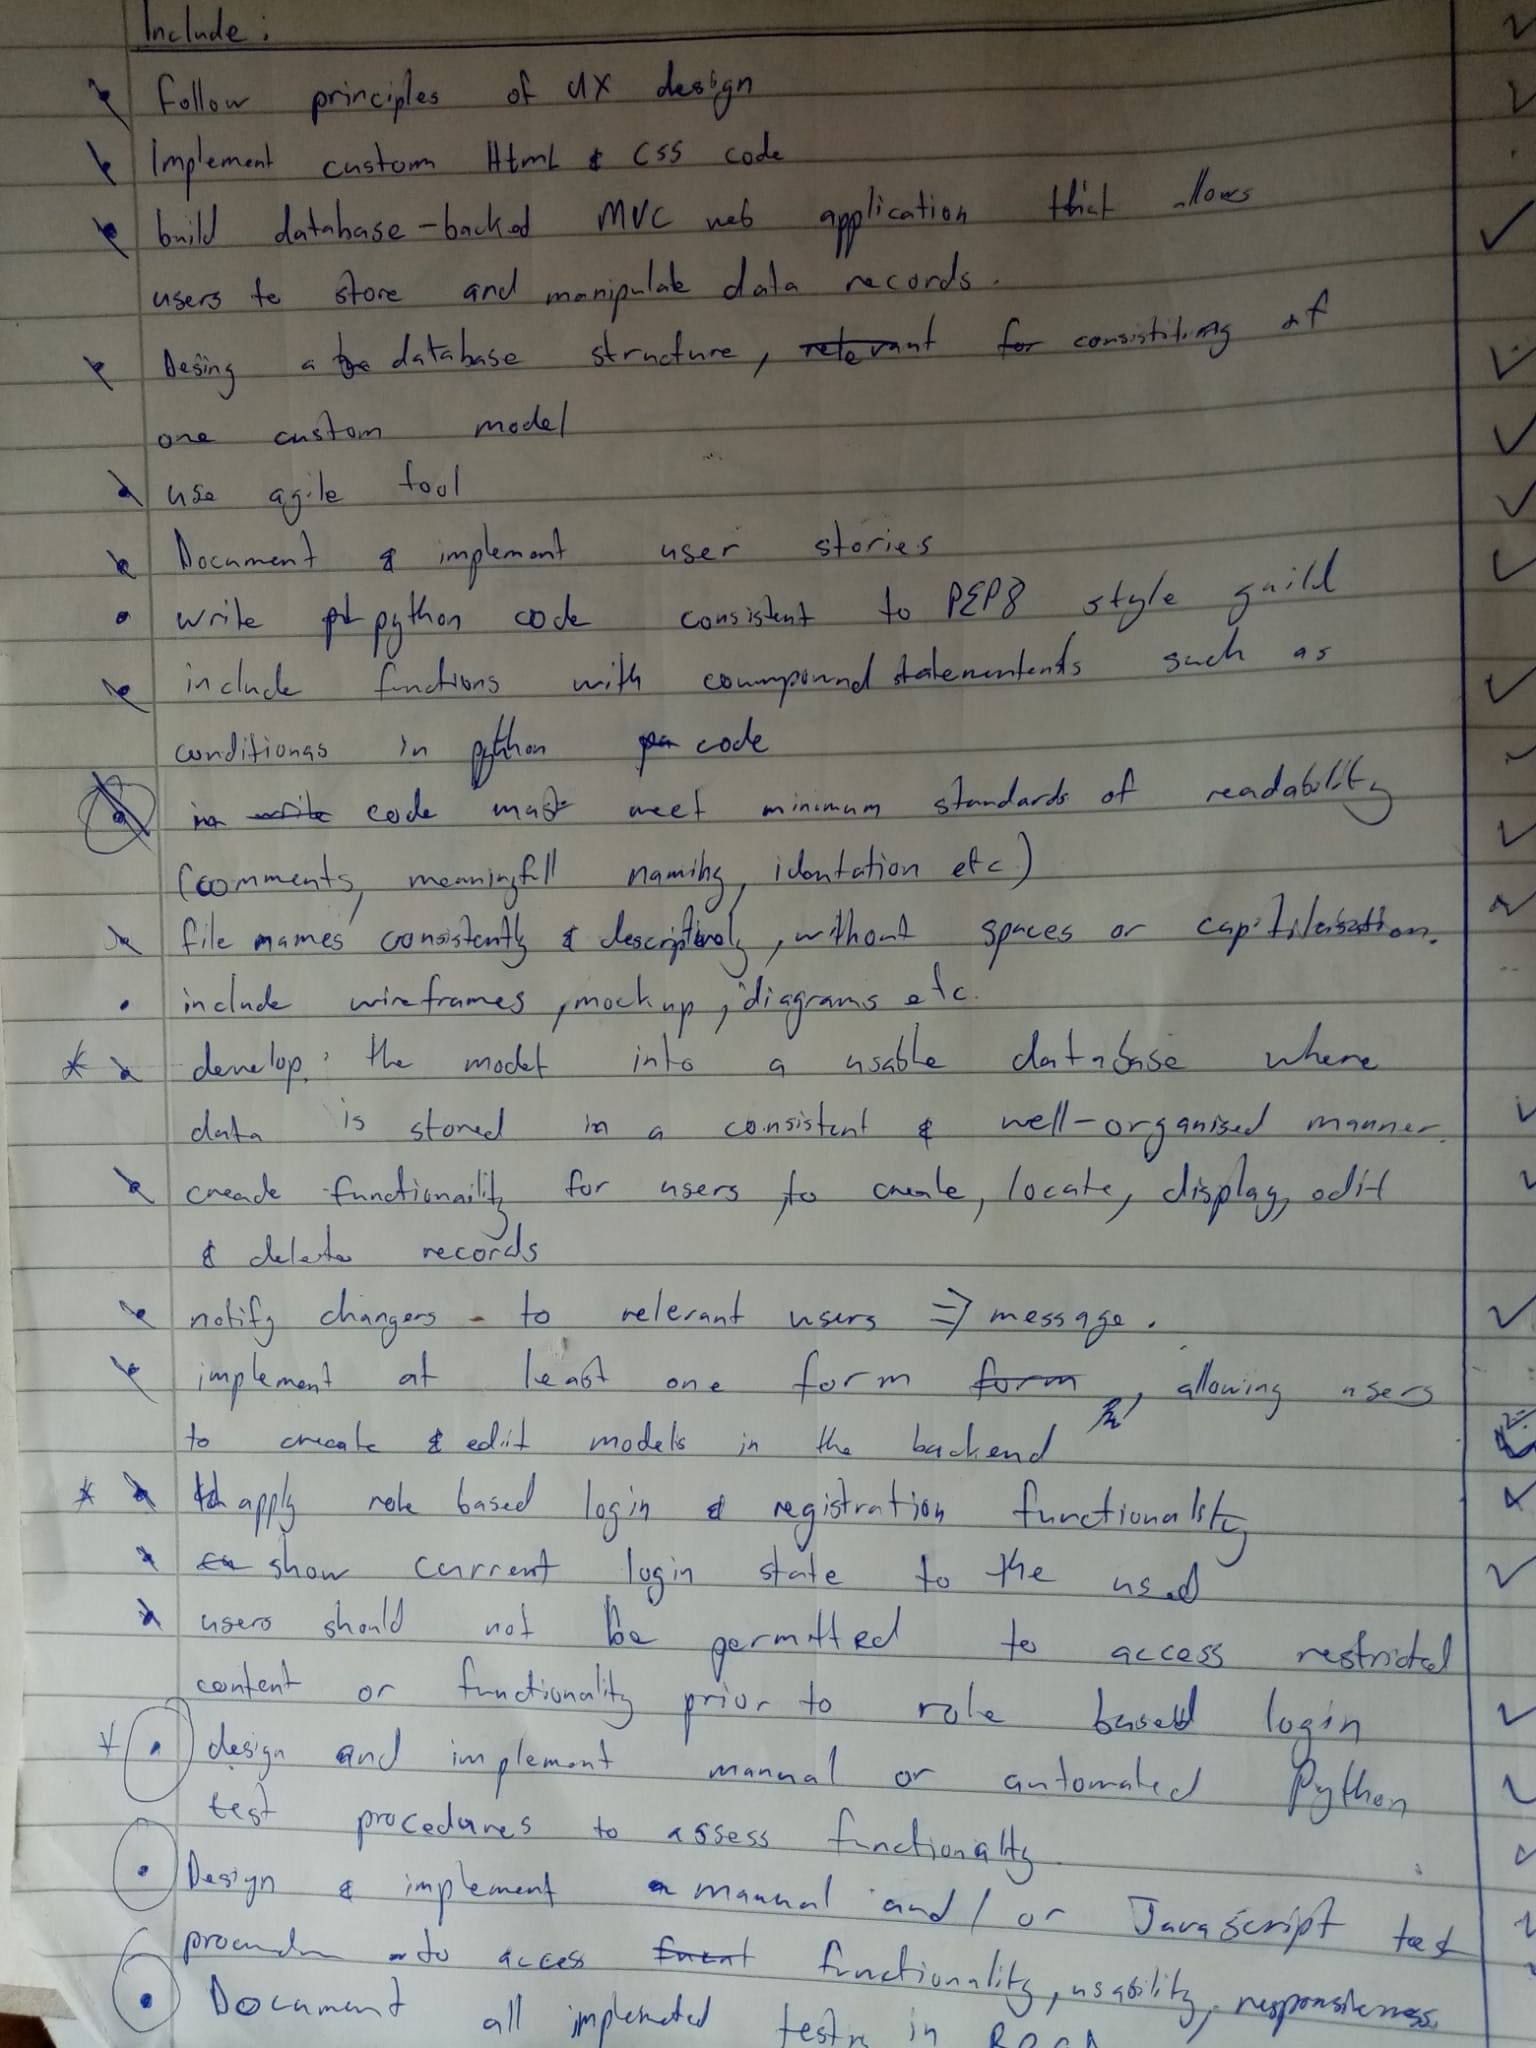 Include:
follow principles of UX design
Implement custom Html & CSS code
build database-backed MVC web application that allows
users to store and manipulate data records.
Desing a database structure, relevant for consistiting of
one custom model
use agile tool
Document & implement user stories
write python code consistent to PEP8 style guild
include functions with coumpound statementents such as
conditionas in python code
write code must meet minimum standards of readability
(comments, meaningfull naming, identation etc)
file names consistently & descriptively, without spaces or
include wireframes, mockup, diagrams etc.
* develop the model into a usable database where
data is stored in a consistent & well-organised manner.
creade functionaility for users to create, locate, display, edit
& delete records
notify changers - to relevant users => message.
implement at least one form form, allowing users
to create & edit models in the backend
* apply role based login & registration functionality
show current login state to the used
users should not be permitted to access restricted
content or functionality prior to role based login
* design and implement manual or automated Python
test procedures to assess functionality.
Design & implement manual and/or JavaScript test
to access functionality, usability, responsiveness
Document all implemeted in